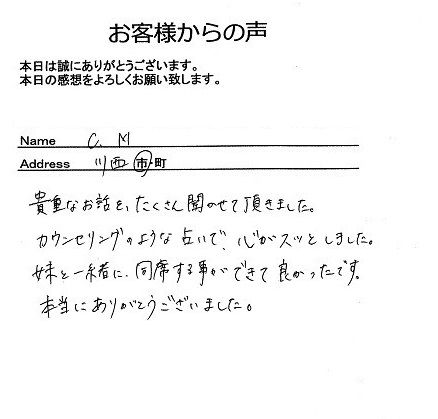 お客様からの声
本日は誠にありがとうございます。
本日の感想をよろしくお願い致します。
Name C. M
Address 川西 市・町
貴重なお話を、たくさん聞かせて頂きました。
カウンセリングのような占いで、心がスッとしました。
妹と一緒に、同席する事ができて良かったです。
本当にありがとうございました。